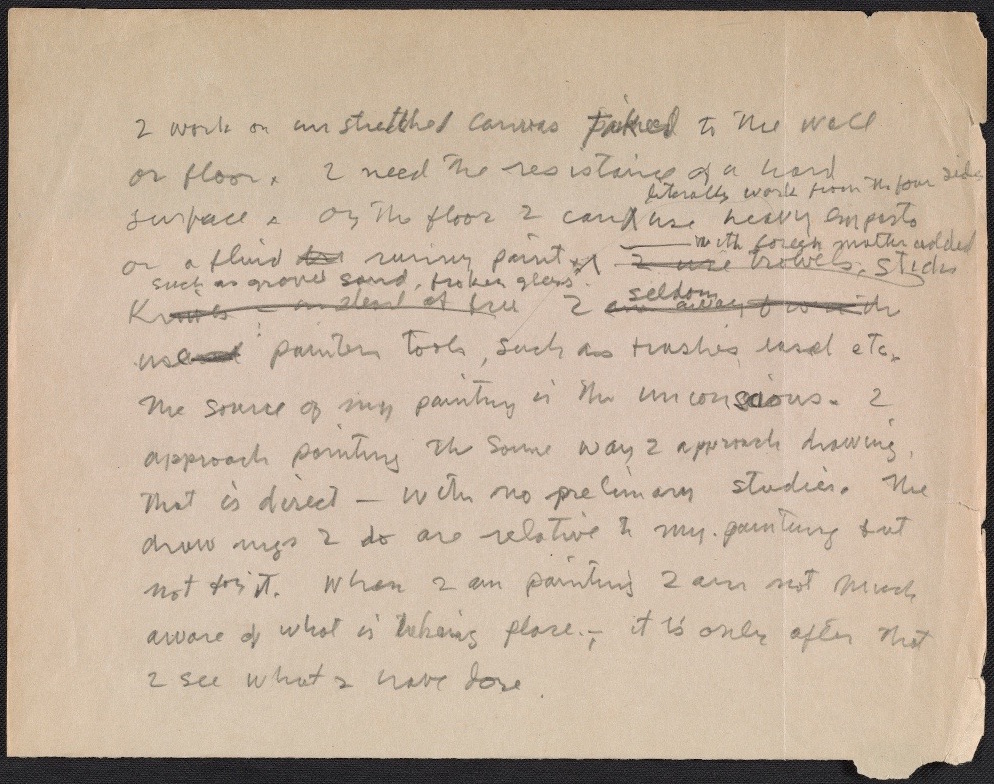 I work on unstretched canvas tacked to the wall
or floor. I need the resistance of a hard
literally work from the four sides
surface. On the floor I can use heavy impasto
with foreign matter added
or a fluid runing paint I use trowels, sticks
such as gravel sand, broken glass.
seldom
Knives instead of I am away from with
use painters tools, such as brushes easel etc.
The source of my painting is the unconscious. I
approach painting the same way I approach drawing,
that is direct — with no prelimary studies. The
drawings I do are relative to my painting but
not for it. When I am painting I am not much
aware of what is taking place.; it is only after that
I see what I have done.